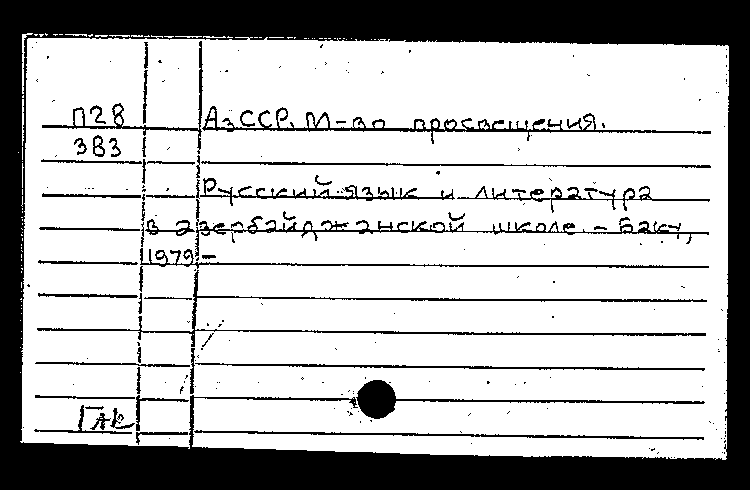 П28 АзССР. М-во просвещения.
ЗВЗ
Русский язык и литература
в азербайджанской школе. - Баку,
1979 -
ГАК